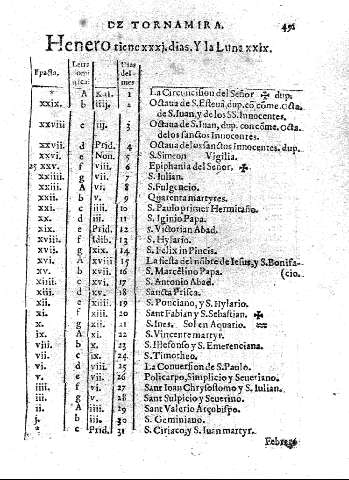 DE TORNAMIRA. 491
Henero tiene xxxj. dias. Y la Luna xxix.
Epacta. Letra Dias del mes
* A Kal. 1 La Circuncision del Señor ✠ dup.
xxix. b iiij. 2 Octaua de S. Esteuã, dup. cõ cõme. octa.
de S. Iuan, y de los SS. Innocentes.
xxviii c iij. 3 Octaua de S. Iuan, dup. con cõme. Octa.
de los sanctos Innocentes.
xxvii. d Prid. 4 Octaua de los sanctos innocentes.
xxvi. e Non. 5 S. Simeon Vigilia.
25 xxv. f viii. 6 Epiphania del Señor, ✠
xxiiii. g vii. 7 S. Iulian.
xxiii. A vi. 8 S. Fulgencio.
xxii. b v. 9 Quarenta martyres.
xxi. c iiii. 10 S. Paulo primer Hermitaño.
xx. d iii. 11 S. Iginio Papa.
xix. e Prid. 12 S. Victorian Abad.
xviii. f Idib. 13 S. Hylario.
xvii. g xix. 14 S. Felix in Pincis.
xvi. A xviii 15 La fiesta del nõbre de Iesus, y S. Bonifa-
xv. b xvii. 16 S. Marcelino Papa. (cio.
xiiii. c xvi. 17 S. Antonio Abad.
xiii. d xv. 18 Sancta Prisca.
xii. e xiiii. 19 S. Ponciano, y S. Hylario.
xi. f xiii. 20 Sant Fabian y S. Sebastian. ✠
x. g xii. 21 S. Ines. Sol en Aquario. ♒
ix. A xi. 22 S. Vincente martyr.
viii. b x. 23 S. Illefonso y S. Emerenciana.
vii. c ix. 24 S. Timotheo.
vi. d viii. 25 La Conuersion de S. Paulo.
v. e vii. 26 Policarpo, Simplicio y Seueriano.
iiii. f vi. 27 Sant Ioan Chrysostomo y S. Iulian.
iii. g v. 28 Sant Sulpicio y Seuerino.
ii. A iiii. 29 Sant Valerio Arçobispo.
j. b iii. 30 S. Geminiano.
* c Prid. 31 S. Ciriaco, y S. Iuan martyr.
Febrero